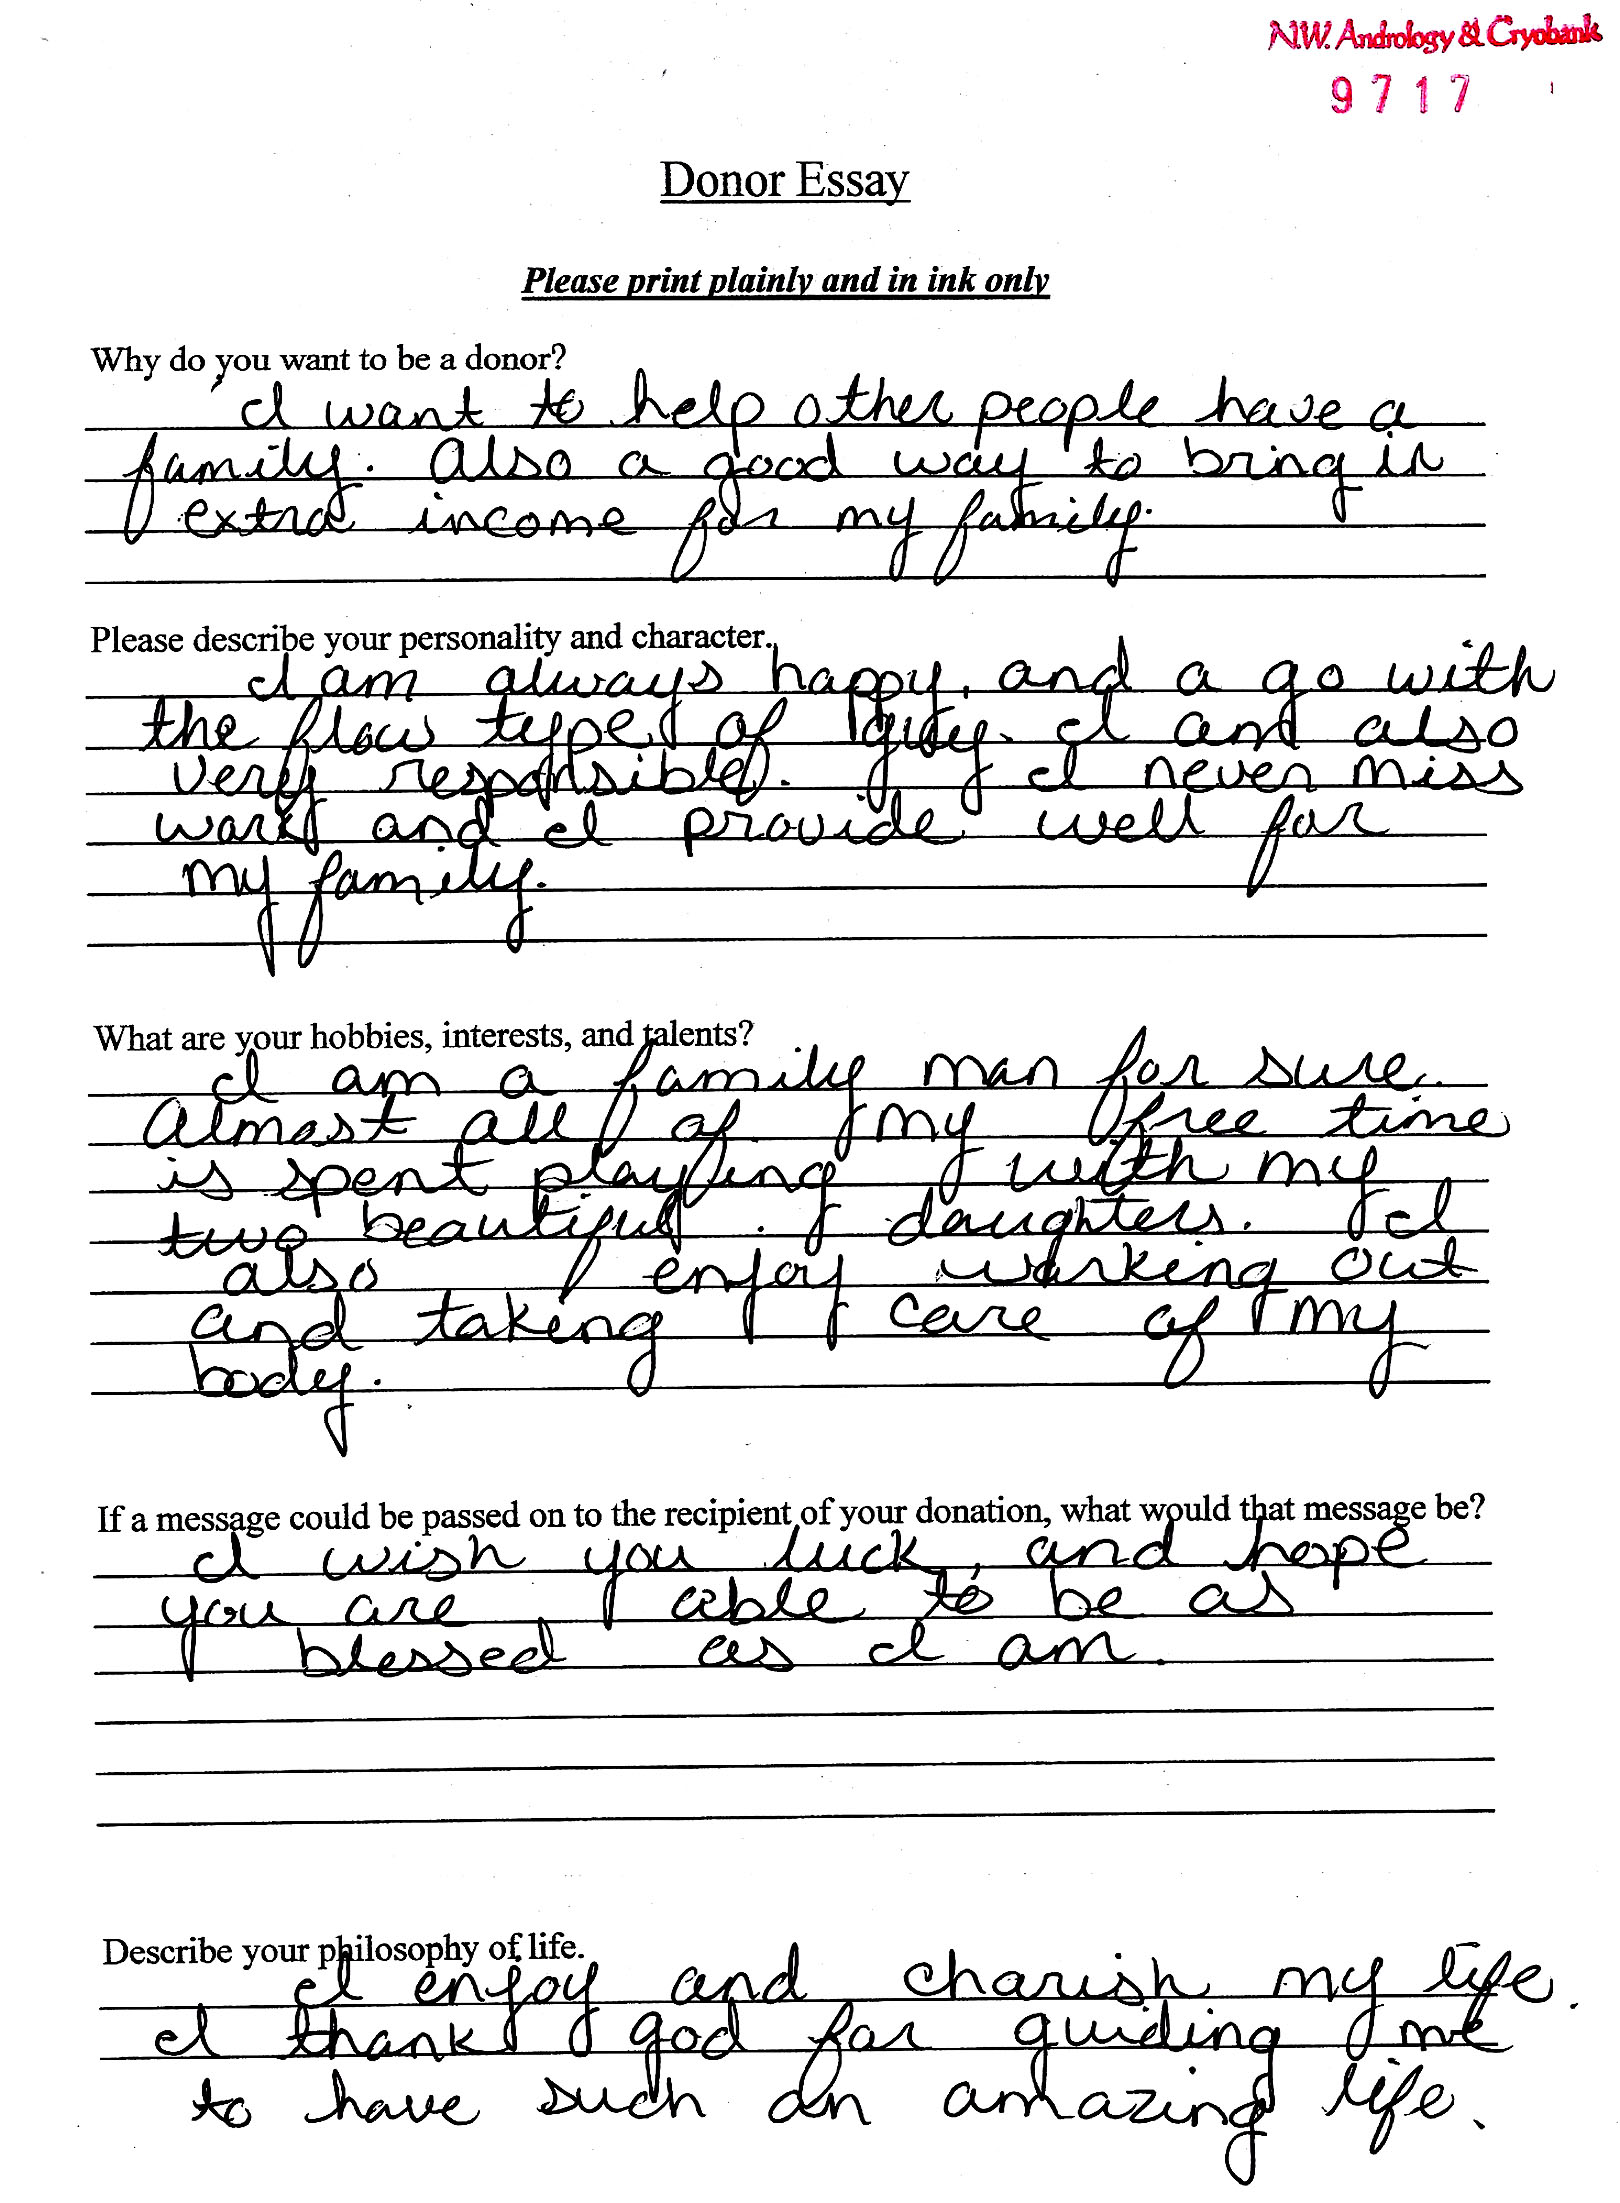 N.W. Andrology & Cryobank
9717
Donor Essay
Please print plainly and in ink only
Why do you want to be a donor?
I want to help other people have a
family. Also a good way to bring in
extra income for my family.
Please describe your personality and character.
I am always happy, and a go with
the flow type of guy. I and also
very responsible. I never miss
work and I provide well for
my family.
What are your hobbies, interests, and talents?
I am a family man for sure.
Almost all of my free time
is spent playing with my
two beautiful daughters. I
also enjoy working out
and taking care of my
body.
If a message could be passed on to the recipient of your donation, what would that message be?
I wish you luck, and hope
you are able to be as
blessed as I am.
Describe your philosophy of life.
I enjoy and charish my life.
I thank god for guiding me
to have such an amazing life.